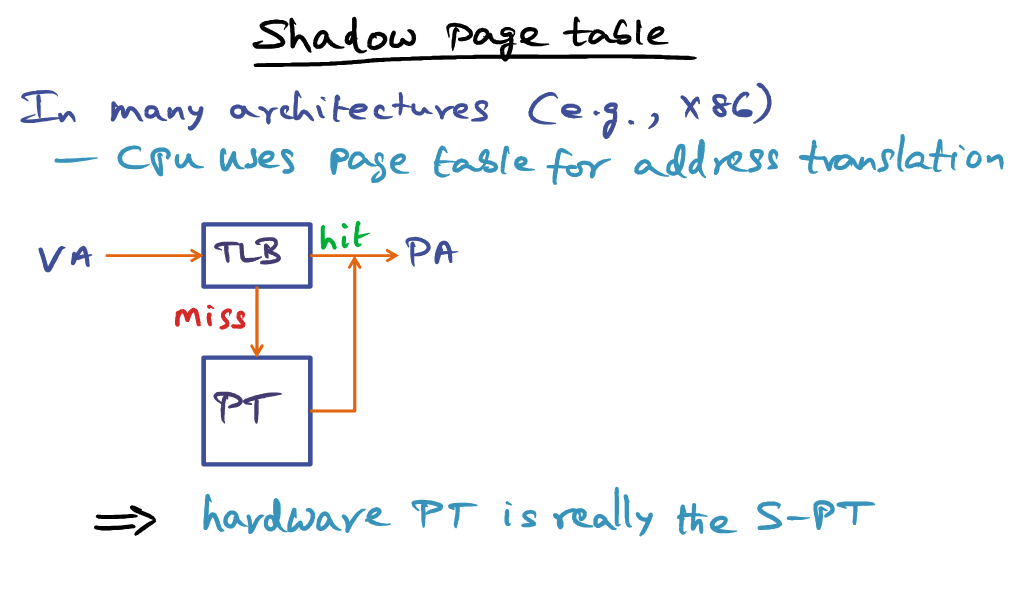 Shadow page table
In many architectures (e.g., x86)
— CPU uses page table for address translation
VA TLB hit PA
miss
PT
⇒ hardware PT is really the S-PT